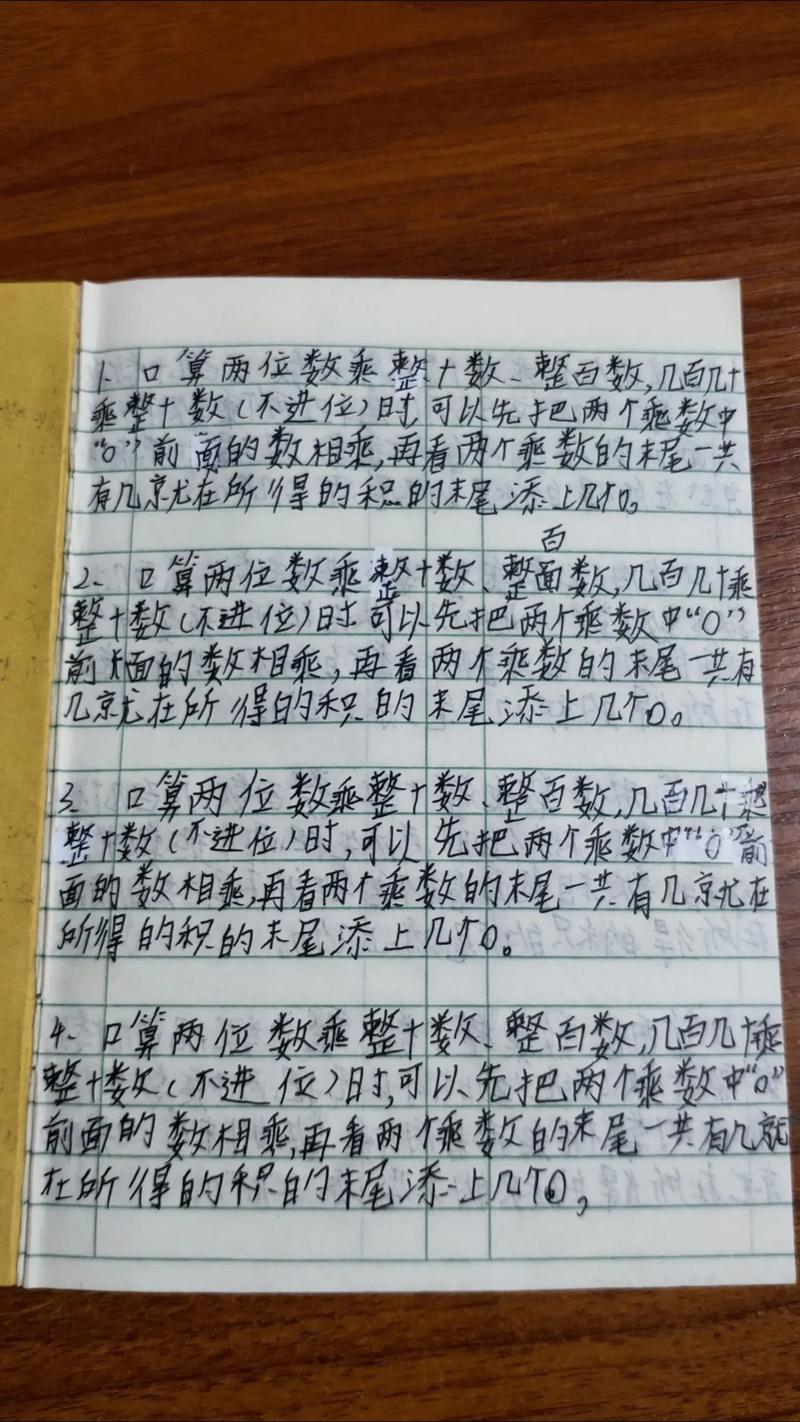 1、口算两位数乘整十数、整百数,几百几十
乘整十数(不进位)时,可以先把两个乘数中
“0”前面的数相乘,再看两个乘数的末尾一共
有几就在所得的积的末尾添上几个0。
百
2、口算两位数乘整十数、整面数,几百几十乘
整十数(不进位)时可以先把两个乘数中“0”
前面的数相乘,再看两个乘数的末尾一共有
几就在所得的积的末尾添上几个0。
3、口算两位数乘整十数、整百数,几百几十乘
整十数(不进位)时,可以先把两个乘数中“0”前
面的数相乘,再看两个乘数的末尾一共有几就在
所得的积的末尾添上几个0。
4、口算两位数乘整十数、整百数,几百几十乘
整十数(不进位)时,可以先把两个乘数中“0”
前面的数相乘,再看两个乘数的末尾一共有几就
在所得的积的末尾添上几个0,